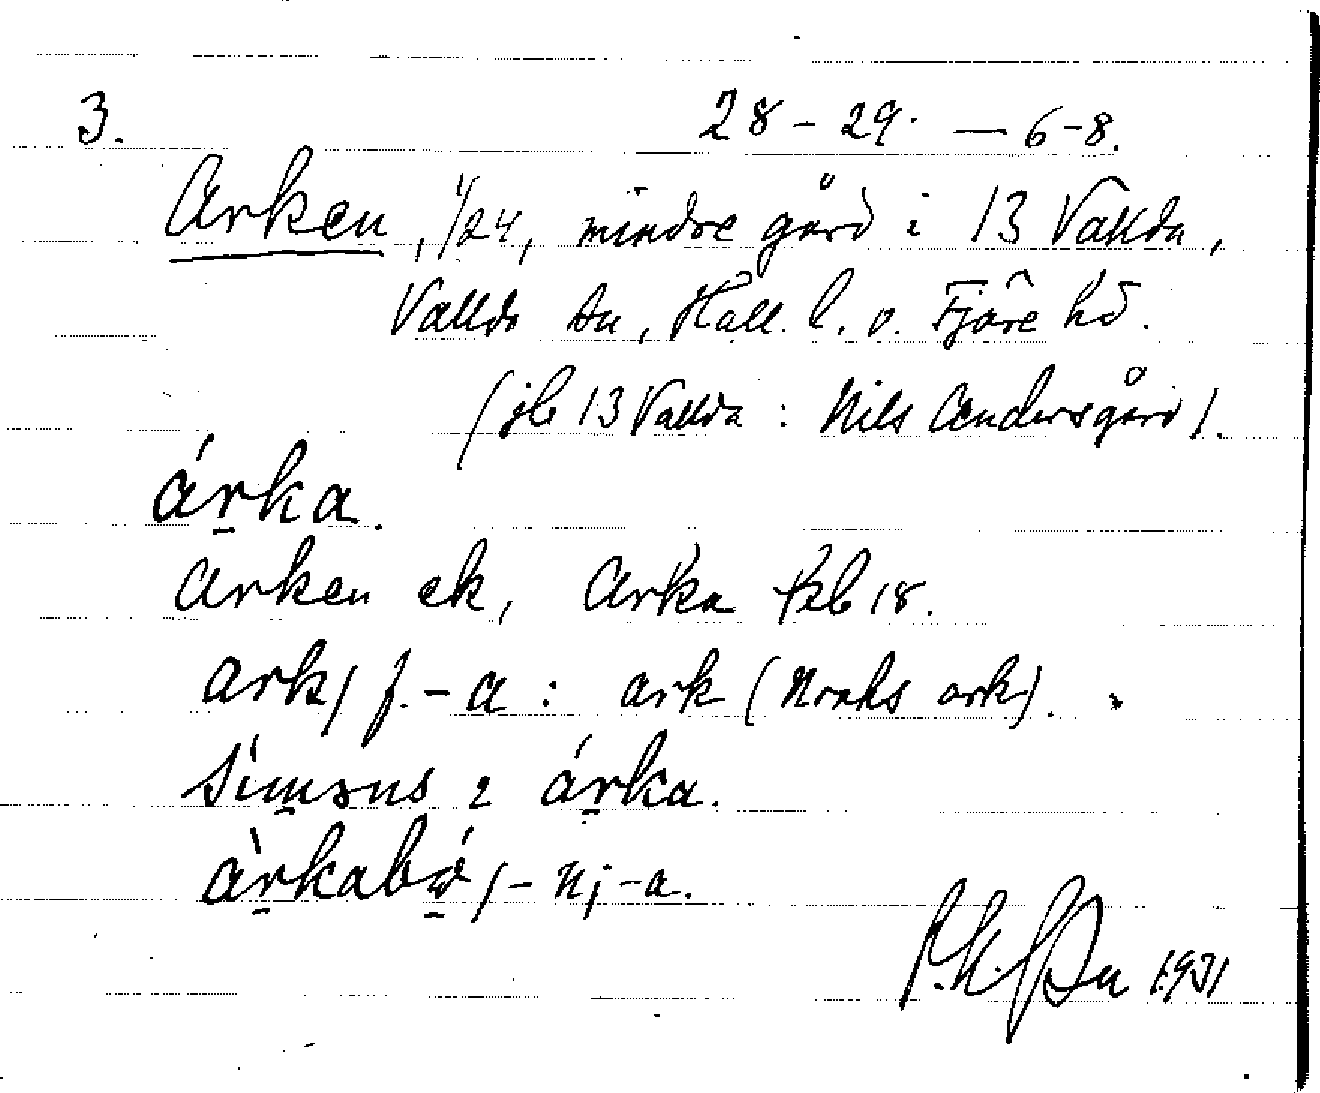 3. 28-29. — 6-8.
Arken, 1/24, mindre gård i 13 Vallda,
Vallda sn, Hall. l. o. Fjäre hd.
(jb 13 Vallda: Nils Andersgård).
árka.
Arken ek, Arka fkb 18.
ark/ f. -a: ark (Noaks ark).
siməns 2 árka.
àrkabǿ/-n; -a.
1931